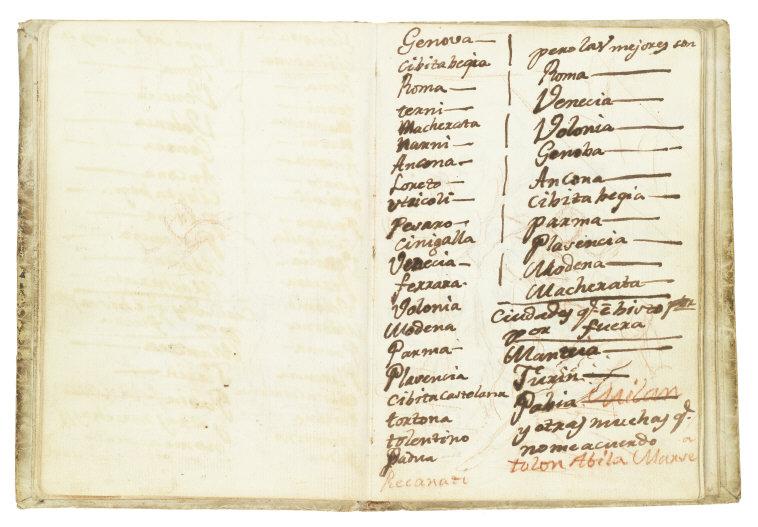 Genova
Cibitabegia
Roma
terni
Macherata
Narni
Ancona
Loreto
Vtricoli
Pesaro
Cinigalla
Venecia
ferrara
Volonia
Modena
Parma
Plasencia
Cibita Castelana
tortona
tolentino
Padua
Recanati
pero las mejores son
Roma
Venecia
Volonia
Genoba
Ancona
Cibita begia
parma
Plasencia
Modena
Macherata
Ciudades q.e
por fuera
Mantua
Turin
Pabia Milan
y otras muchas q.
no me acuerdo a
tolon Abila Marse